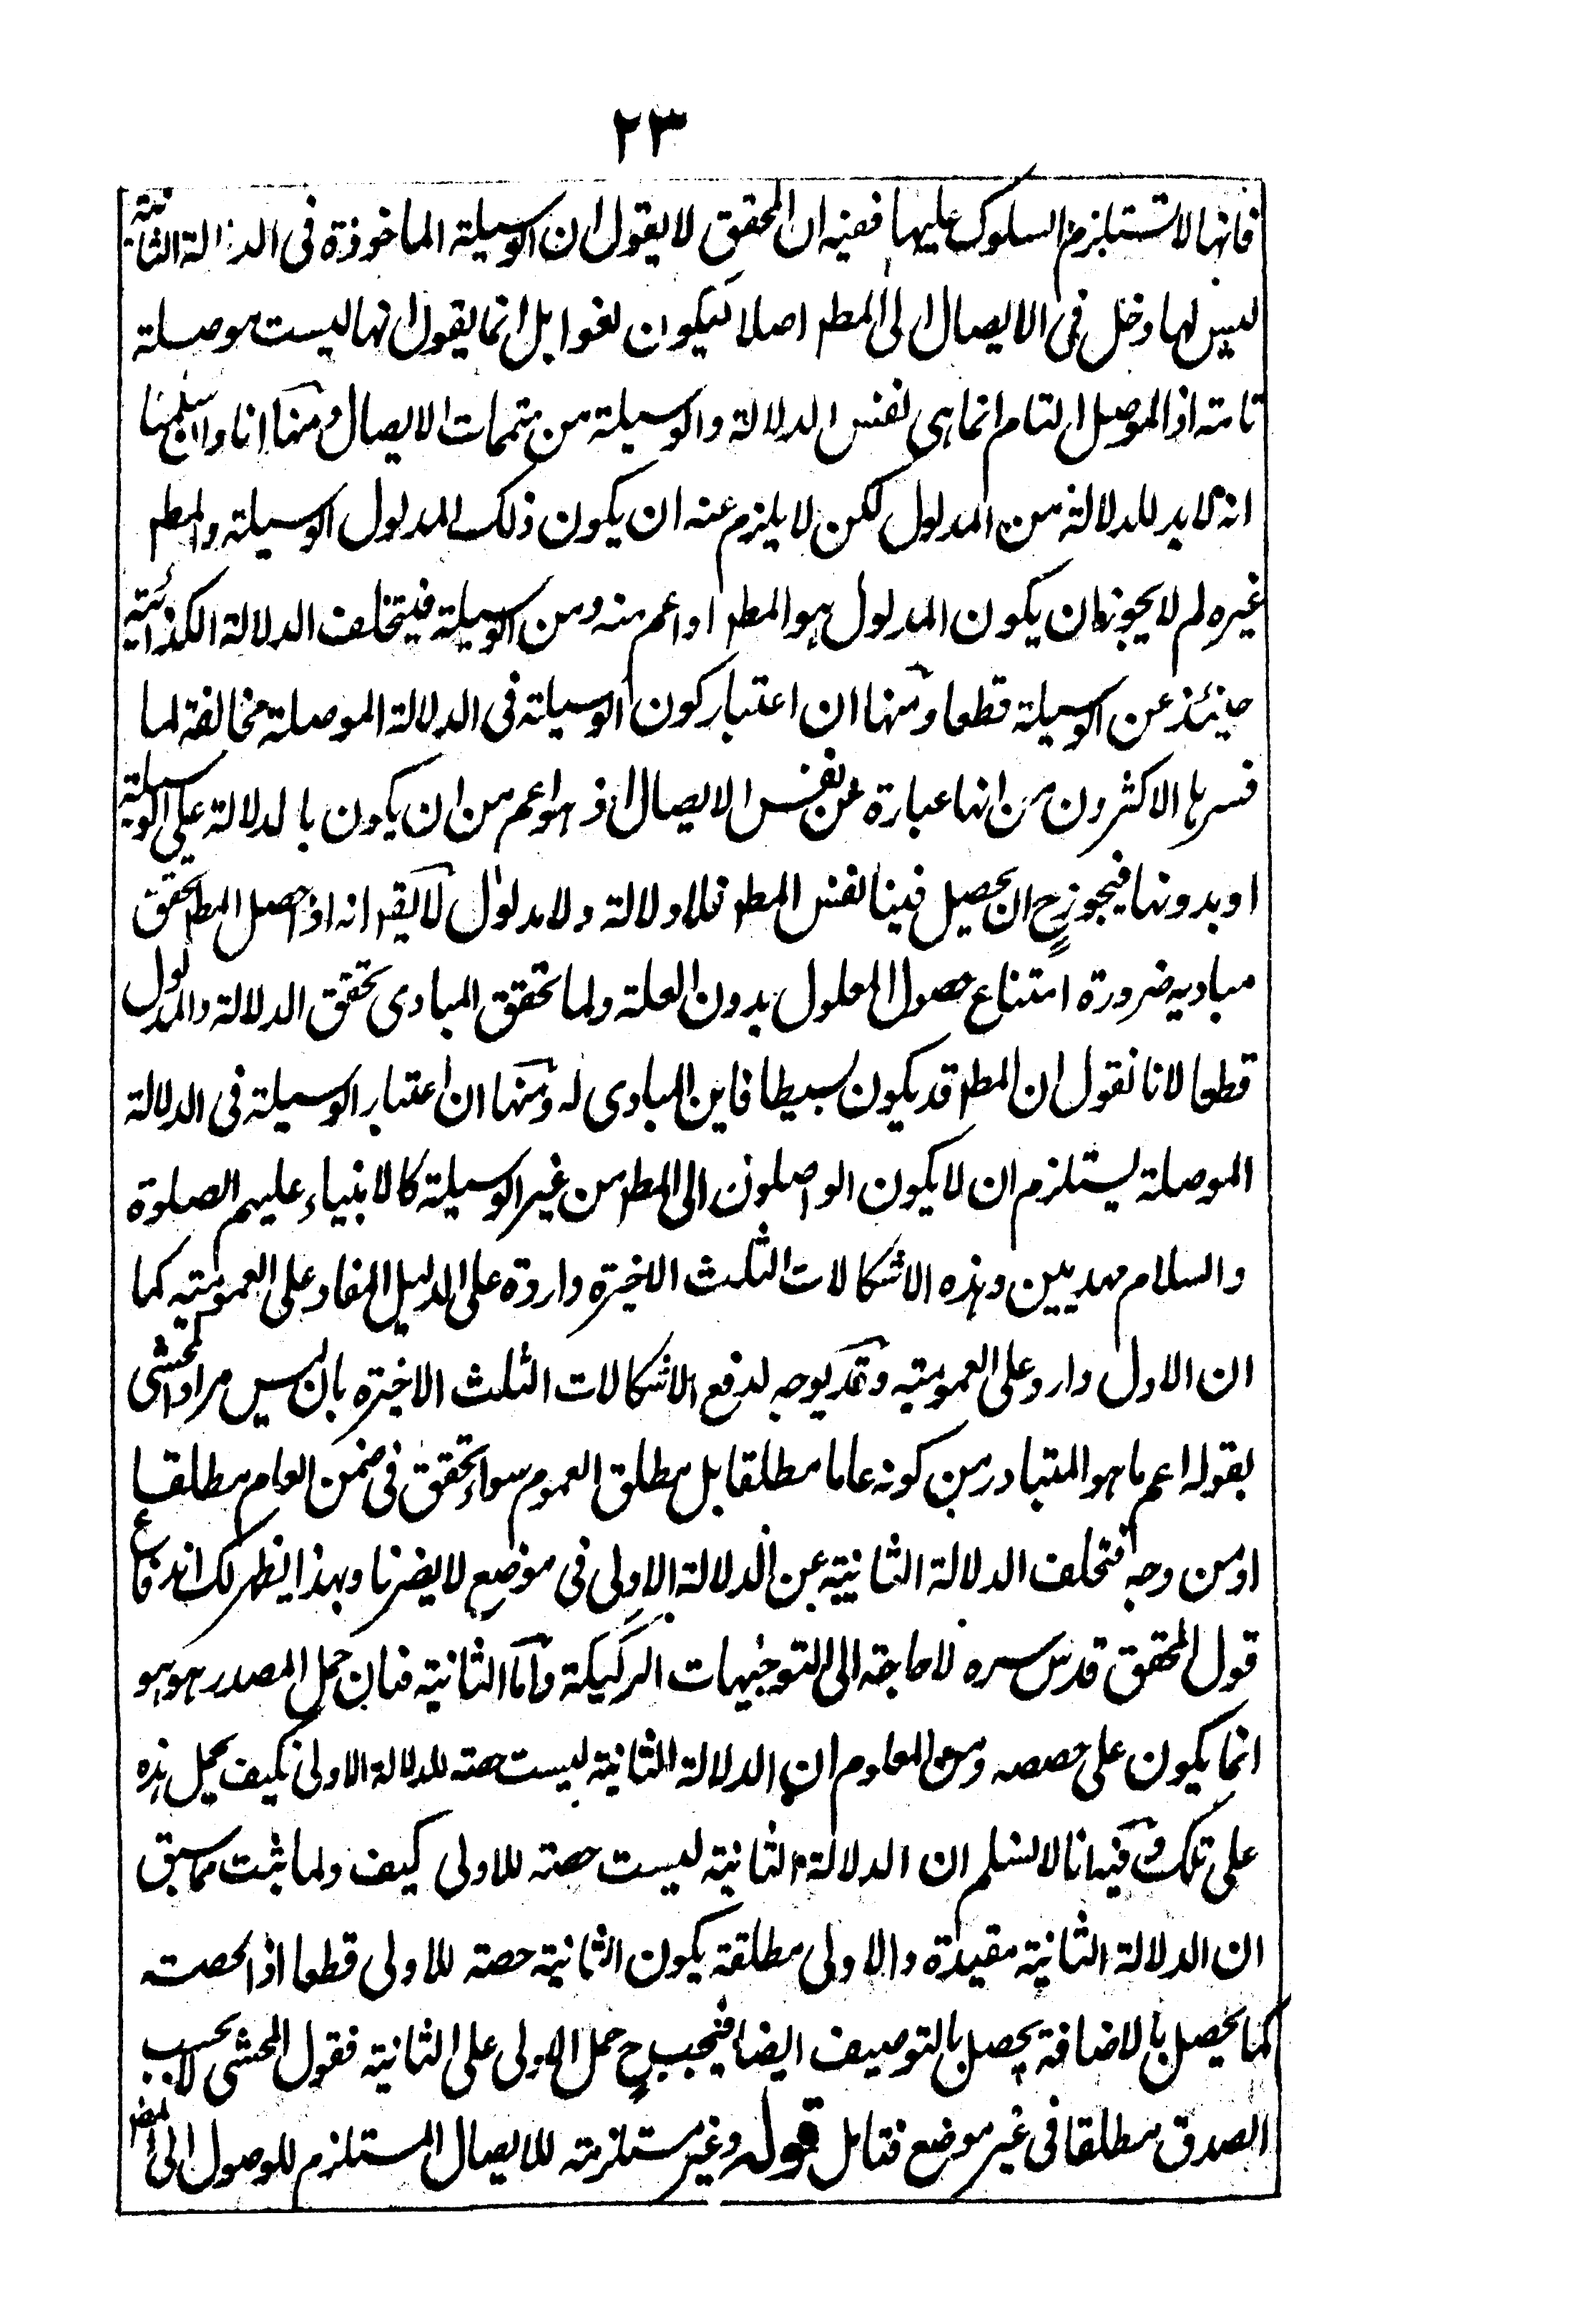 ٢٣
فانها لا تستلزم السلوك عليها ففيه ان المحقق لا يقول ان الوسيلة الماخوذة فى الدلالة الثانية
ليس لها دخل فى الايصال الى المطر اصلا ليكون لغوا بل انما يقول انها ليست موصلة
تامة اذ الموصل التام انما هى نفس الدلالة والوسيلة من متممات الايصال ومنها انا وان سلمنا
انه لا بد للدلالة من المدلول لكن لا يلزم عنه ان يكون ذلك المدلول الوسيلة والمطر
غيره لم لا يجوز ان يكون المدلول هو المطر او اعم منه ومن الوسيلة فيتخلف الدلالة الكذائية
حينئذ عن الوسيلة قطعا ومنها ان اعتبار كون الوسيلة فى الدلالة الموصلة مخالفة لما
فسرها الاكثرون من انها عبارة عن نفس الايصال اذ هو اعم من ان يكون بالدلالة على الوسيلة
او بدونها فيجوز ح ان يحصل فينا نفس المطر فلا دلالة ولا مدلول لا يقر انه اذا حصل المطر تحقق
مباديه ضرورة امتناع حصول المعلول بدون العلة ولما تحقق المبادى تحقق الدلالة والمدلول
قطعا لانا نقول ان المطر قد يكون بسيطا فاين المبادى له ومنها ان اعتبار الوسيلة فى الدلالة
الموصلة يستلزم ان لا يكون الواصلون الى المطر من غير الوسيلة كالانبياء عليهم الصلوة
والسلام مهديين وهذه الاشكالات الثلث الاخيرة واردة على الدليل المفاد على العمومية كما
ان الاول وارد على العمومية وقد يوجه لدفع الاشكالات الثلث الاخيرة بان ليس مراد المحشى
بقوله اعم ما هو المتبادر من كونه عاما مطلقا بل مطلق العموم سواء تحقق فى ضمن العام مطلقا
او من وجه فتخلف الدلالة الثانية عن الدلالة الاولى فى موضع لا يضرنا وبهذا يظهر لك اندفاع
قول المحقق قدس سره لا حاجة الى التوجيهات الركيكة واما الثانية فبان حمل المصدر هو هو
انما يكون على حصصه ومن المعلوم ان الدلالة الثانية ليست حصة للدلالة الاولى فكيف يحمل هذه
على تلك وفيه انا لا نسلم ان الدلالة الثانية ليست حصة للاولى كيف ولما ثبت مما سبق
ان الدلالة الثانية مقيدة والاولى مطلقة يكون الثانية حصة للاولى قطعا اذ الحصة
كما يحصل بالاضافة يحصل بالتوصيف ايضا فيجب ح حمل الاولى على الثانية فقول المحشى لا بحسب
الصدق مطلقا فى غير موضع فتامل قوله وغير مستلزمة للايصال المستلزم للوصول الى المطر